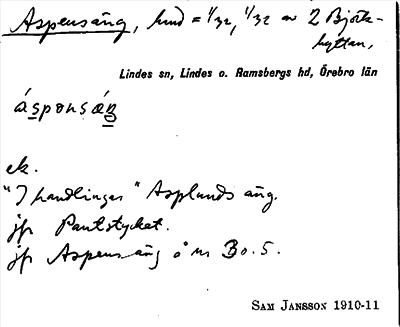 Aspensäng, hmd = 1/32, 1/32 av 2 Björk-
hyttan,
Lindes sn, Lindes o. Ramsbergs hd, Örebro län
áspɷnsǽŋ
ek.
"I handlingar" Asplunds äng.
jfr Pantstycket.
jfr Aspens äng å nr Bo. 5.
SAM JANSSON 1910-11